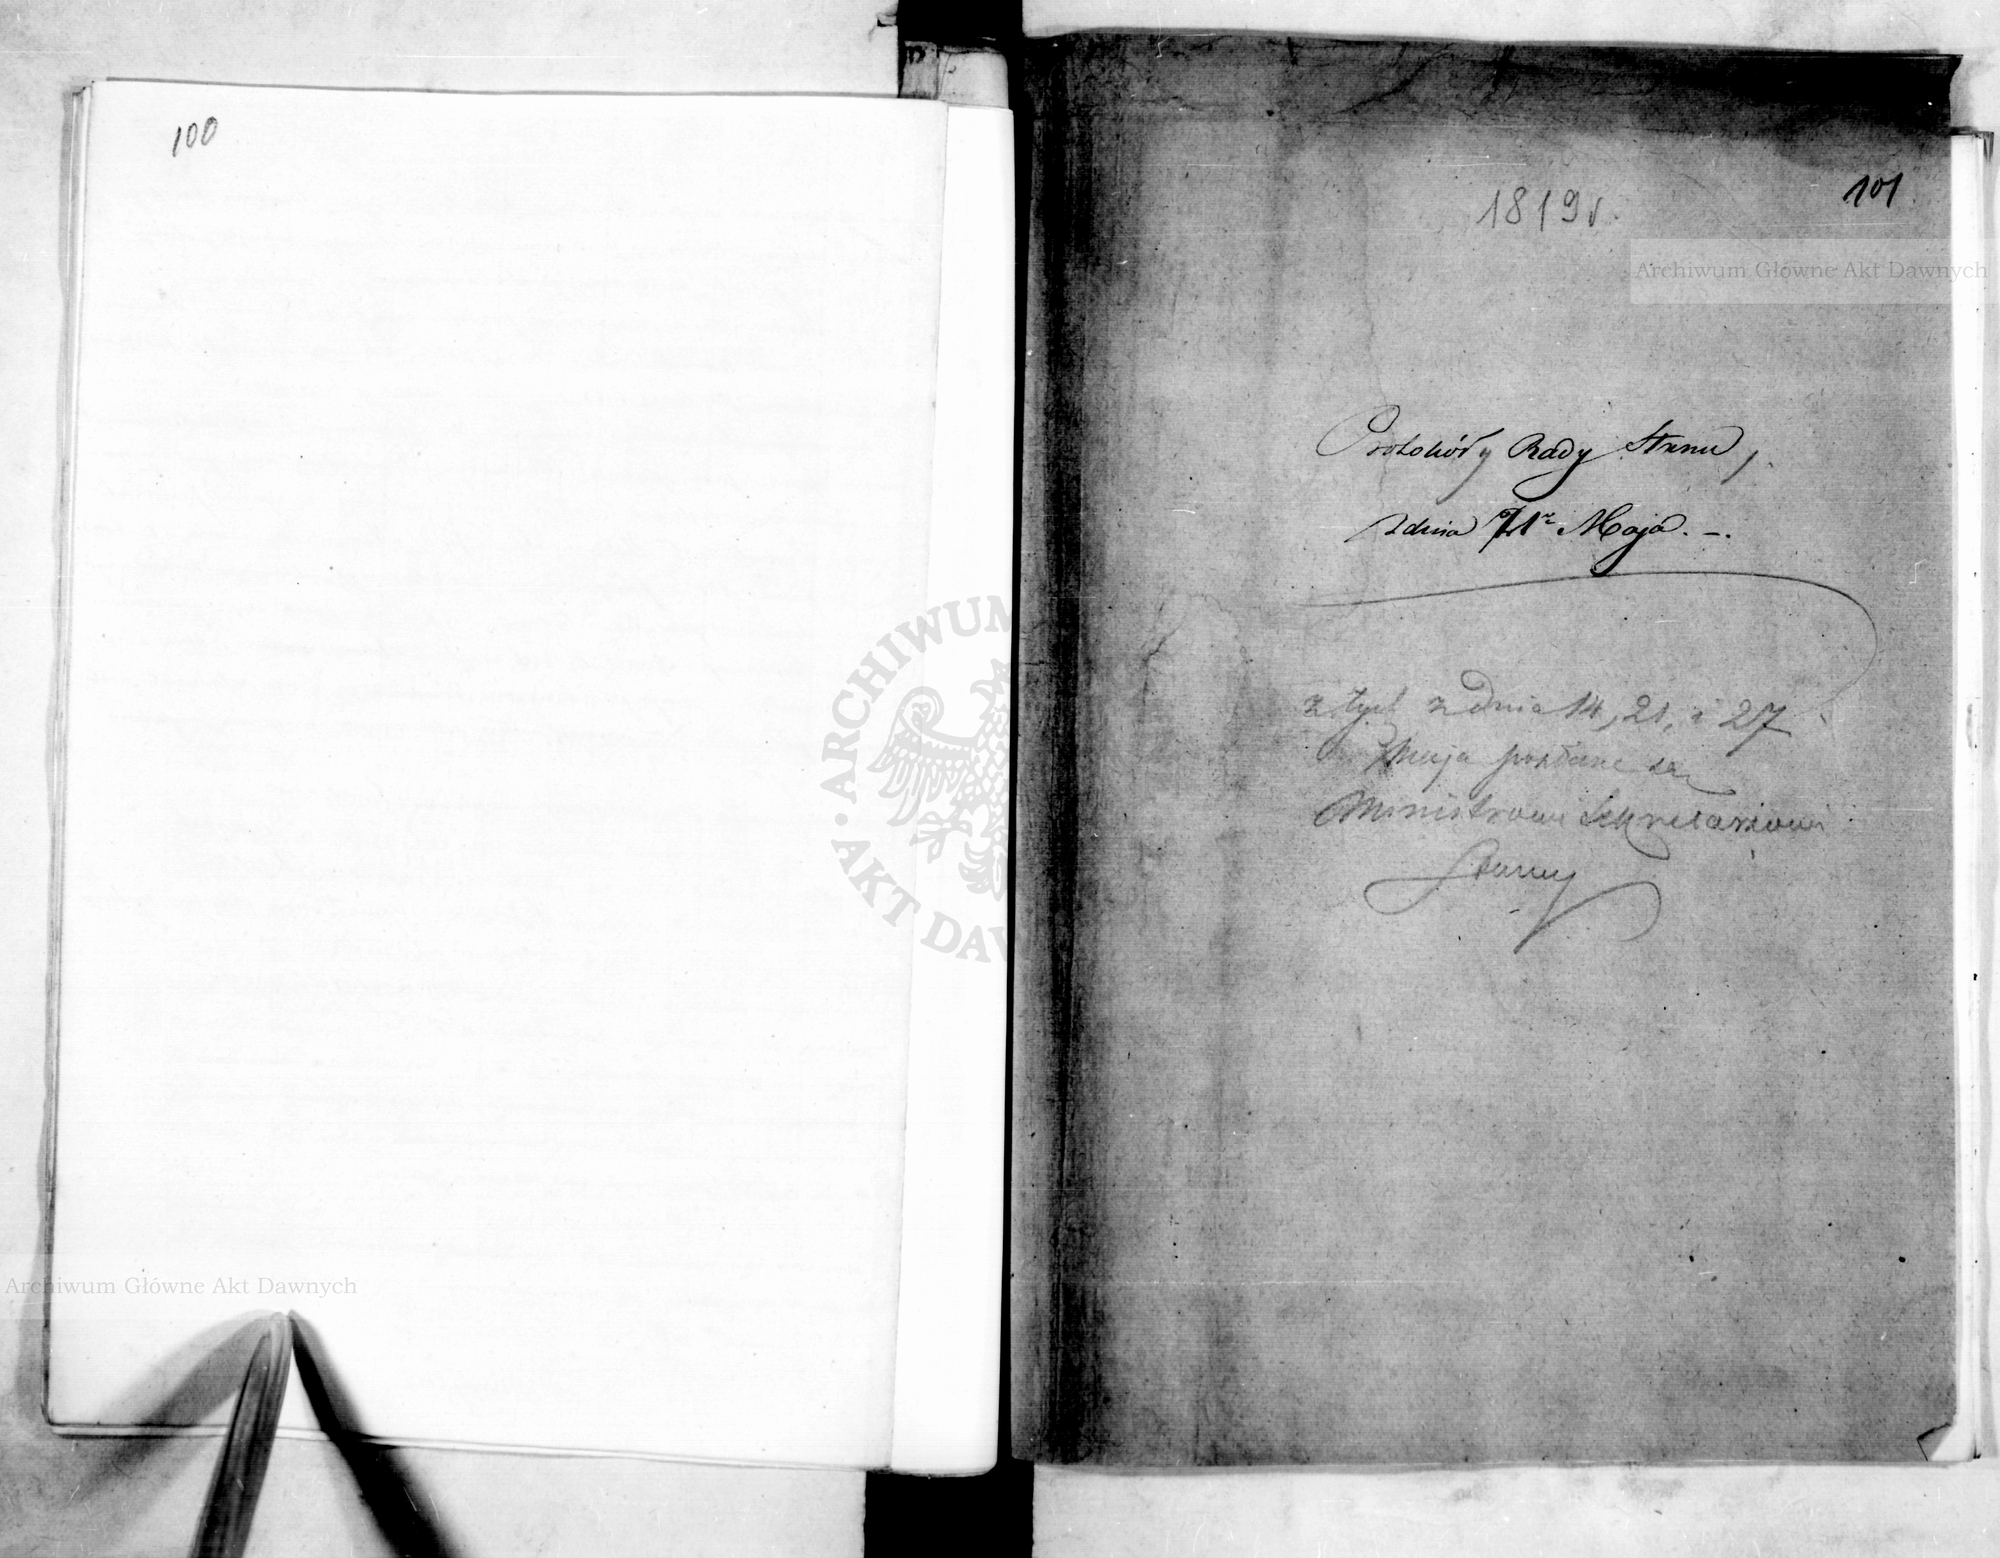 100
101
1819 r.
Archiwum Główne Akt Dawnych
Protokóły Rady Stanu,
z dnia Maja. -.
z tych z dnia 14, 21, i 27
Maja posłane są
Ministrowi Sekretarzowi
Stanu
ARCHIWUM
AKT DAW
Archiwum Główne Akt Dawnych